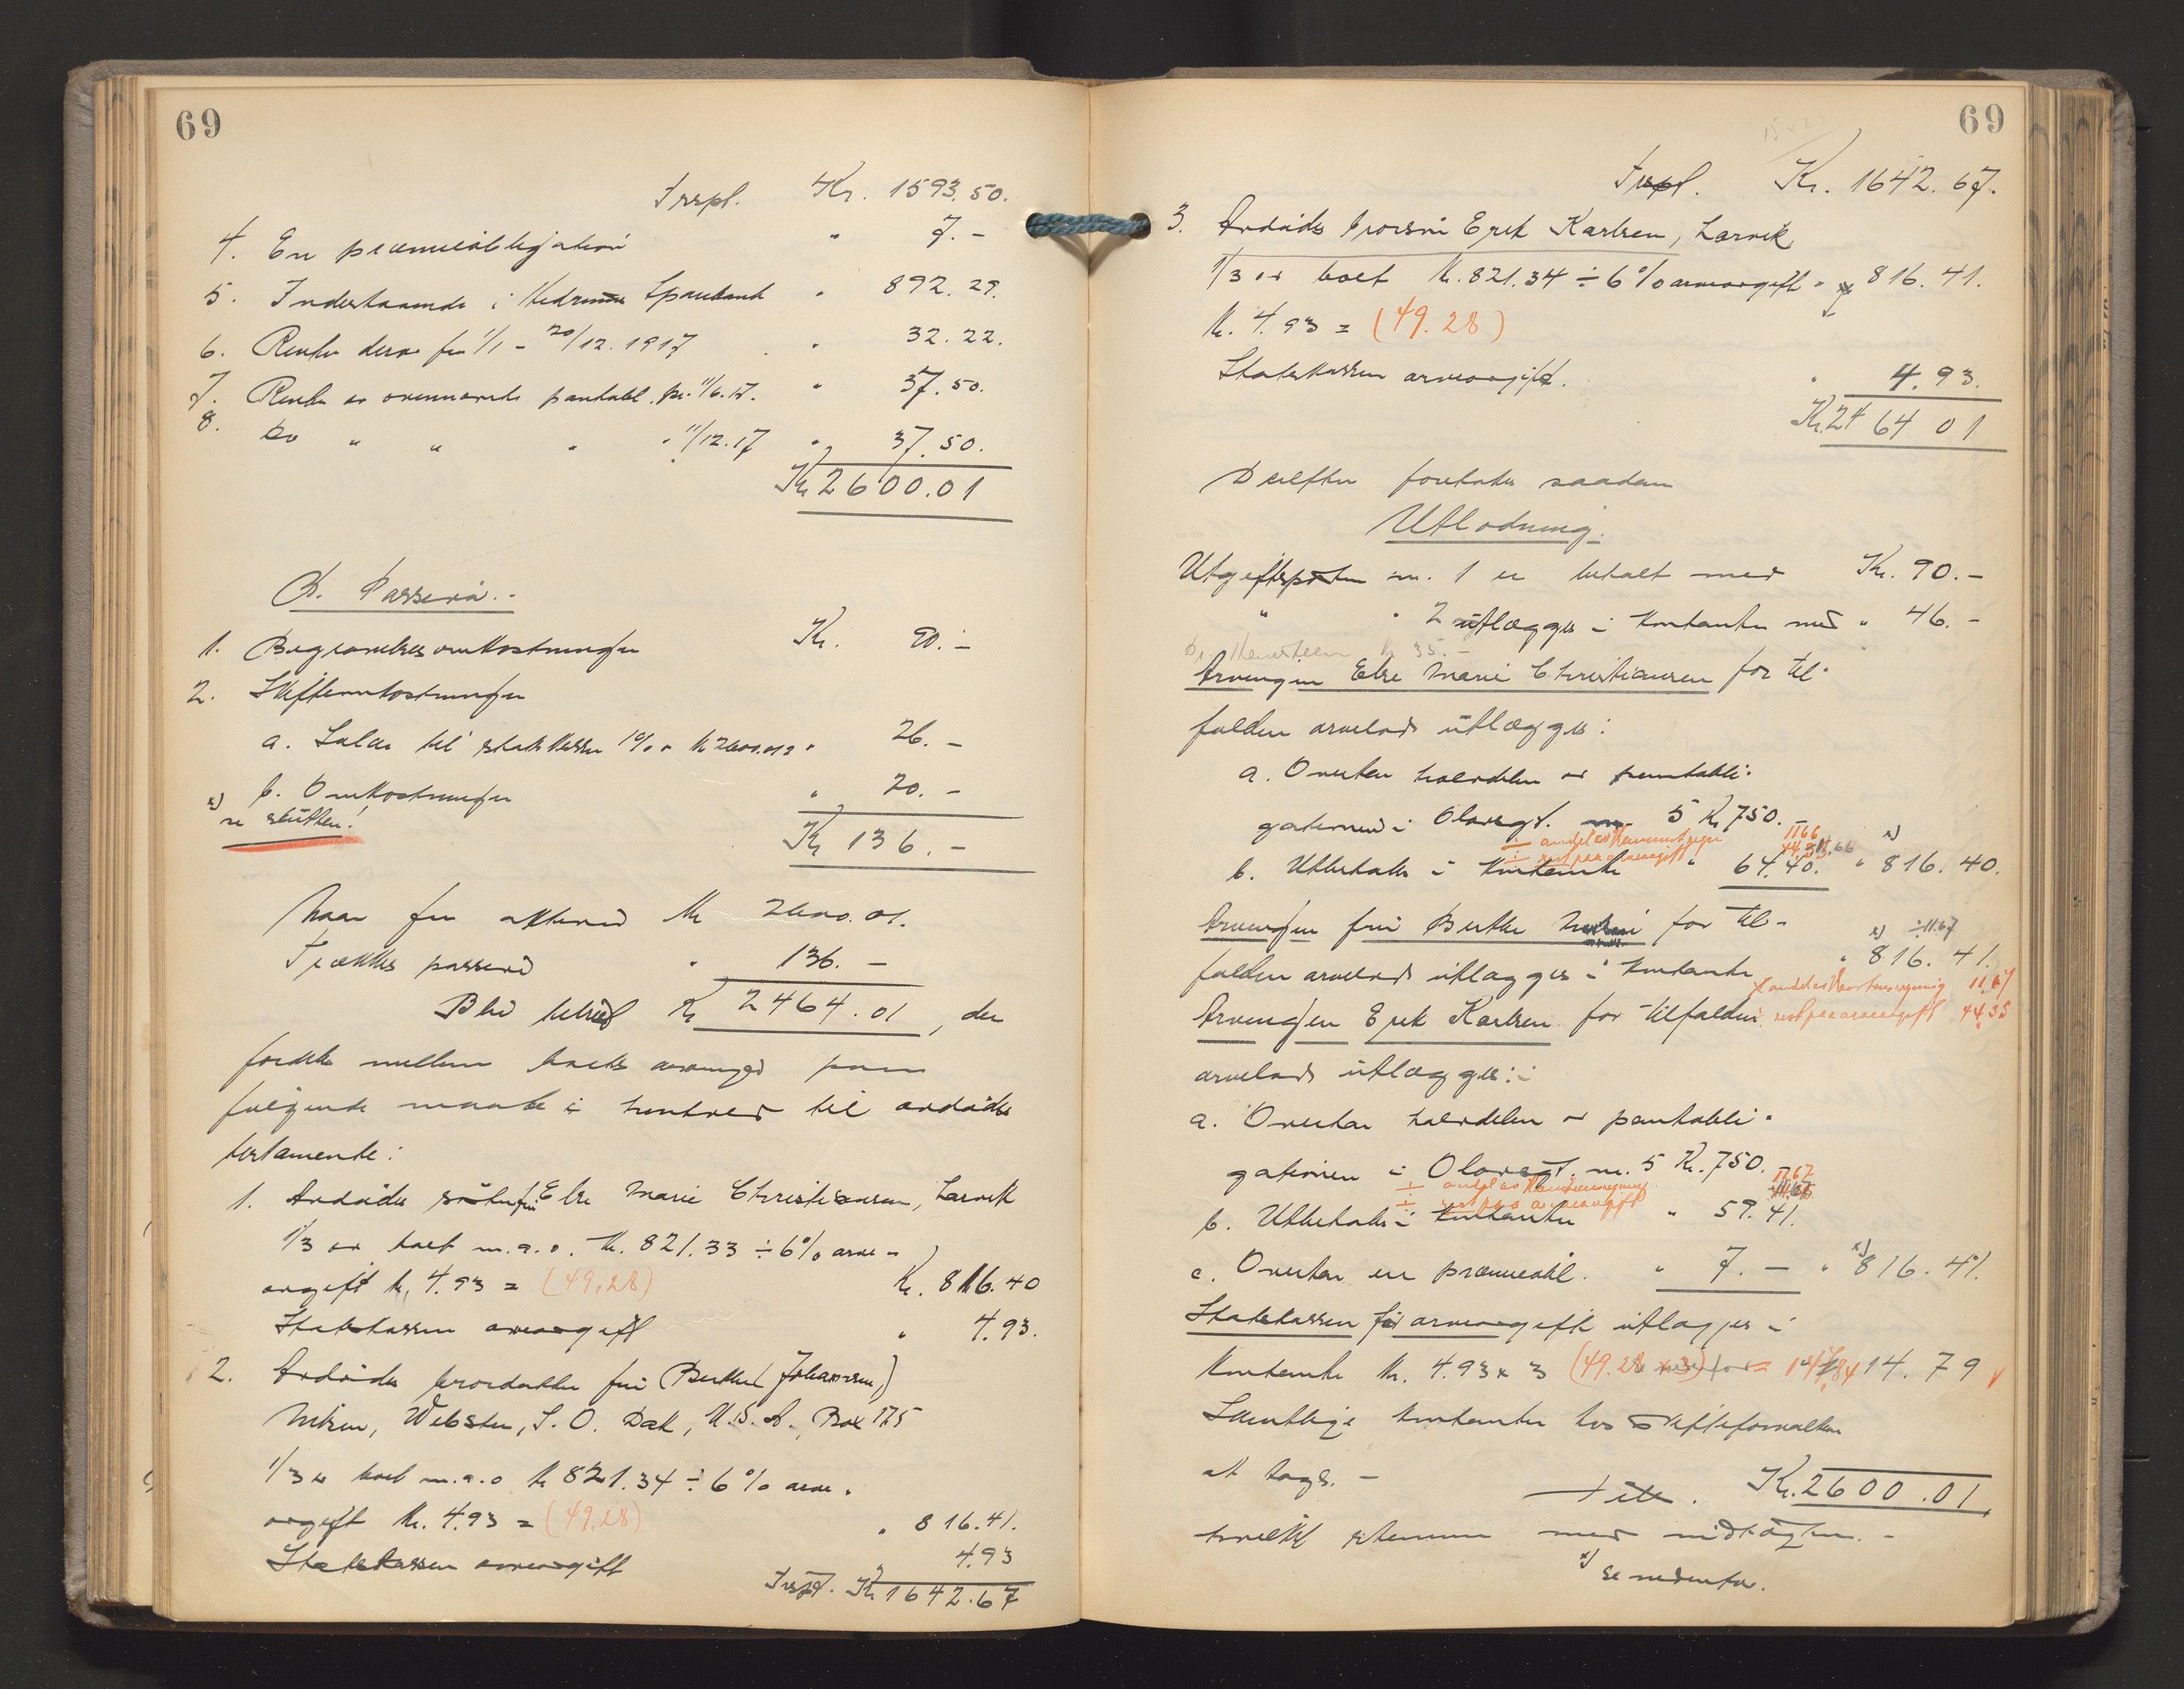 69
Trspl. Kr. 1593.50.
4. En præmieobligation " 7.-
5. Indestaaende i Hedrums Sparebank " 892.29.
6. Renter derav fra 1/1 - 20/12.1917 " 32.22.
7. Renter av ovennævnte pantobl. pr. 11/6.17. " 37.50.
8. Do " " " " 11/12.17 " 37.50.
Kr 2600.01
B. Passiva.-
1. Begravelsesomkostninger Kr. 90.-
2. Skifteomkostninger
a. Salær til statskassen 1% av kr 2600.01 = " 26.-
b. Omkostninger " 20.-
x) se slutten!
Kr 136.-
Naar fra aktiva kr 2600.01.
Trækkes passiva " 136.-
Blir behold Kr 2464.01, der
fordeles mellem boets arvinger paa
følgende maate i henhold til avdødes
testamente:
1. Avdødes søster fru Else Marie Christiansen, Larvik
1/3 av boet m.a.o. kr. 821.33 ÷ 6% arve-
avgift kr. 4.93 = (49.28) Kr. 816.40
Statskassen arveavgift " 4.93.
2. Avdødes brordatter fru Berthe (Johannesen,)
Nilsen, Webster, S. O. Dak, U.S.A., Box 175
1/3 av boet m.a.o kr 821.34 ÷ 6% arve-
avgift kr. 4.93 = (49.28) " 816.41.
Statskassen arveavgift " 4.93
Trspl. Kr 1642.67
69
Trspl. Kr. 1642.67.
3. Avdødes brorsøn Erik Karlsen, Larvik
1/3 av boet kr. 821.34 ÷ 6% arveavgift " 816.41.
kr. 4.93 = (49.28)
Statskassen arveavgift. " 4.93.
Kr. 2464 01
Derefter foretokes saadan
Utlodning.
Utgiftsposten nr. 1 er betalt med Kr. 90.-
" " 2 utlægges i kontanter med " 46.-
kr 35.-
Arvingen Else Marie Christiansen for til-
falden arvelod utlægges:
a. Overtar halvdelen av pantobli-
gationen i Olavsgt. nr. 5 Kr 750.-
÷ andel av regning 11.66
÷ rest paa arveavgift 44.35
b. Utbetales i kontanter " 64.40. " x) 816.40.
Arvingen fru Berthe Nilsen for til- ÷ 11.67
falden arvelod utlægges i kontanter " x) 816.41.
÷ andel av regning 11.67
Arvingen Erik Karlsen for tilfalden rest paa arveavgift 44.35
arvelod utlægges:-
a. Overtar halvdelen av pantobli-
gationen i Olavsgt. nr. 5 Kr. 750.-
÷ andel av regning 11.67
÷ rest paa arveavgift
b. Utbetales i kontanter " 59.41.
c. Overtar en præmieobl. " 7.- " x) 816.41.
Statskassen for arveavgift utlægges i
kontanter kr. 4.93 x 3 (49.28 x 3) = 147.84 14.79
Samtlige kontanter hos skifteforvalteren
at tages.-
Kr. 2600.01.
hvilket stemmer med indtægten.-
x) Se nedenfor.